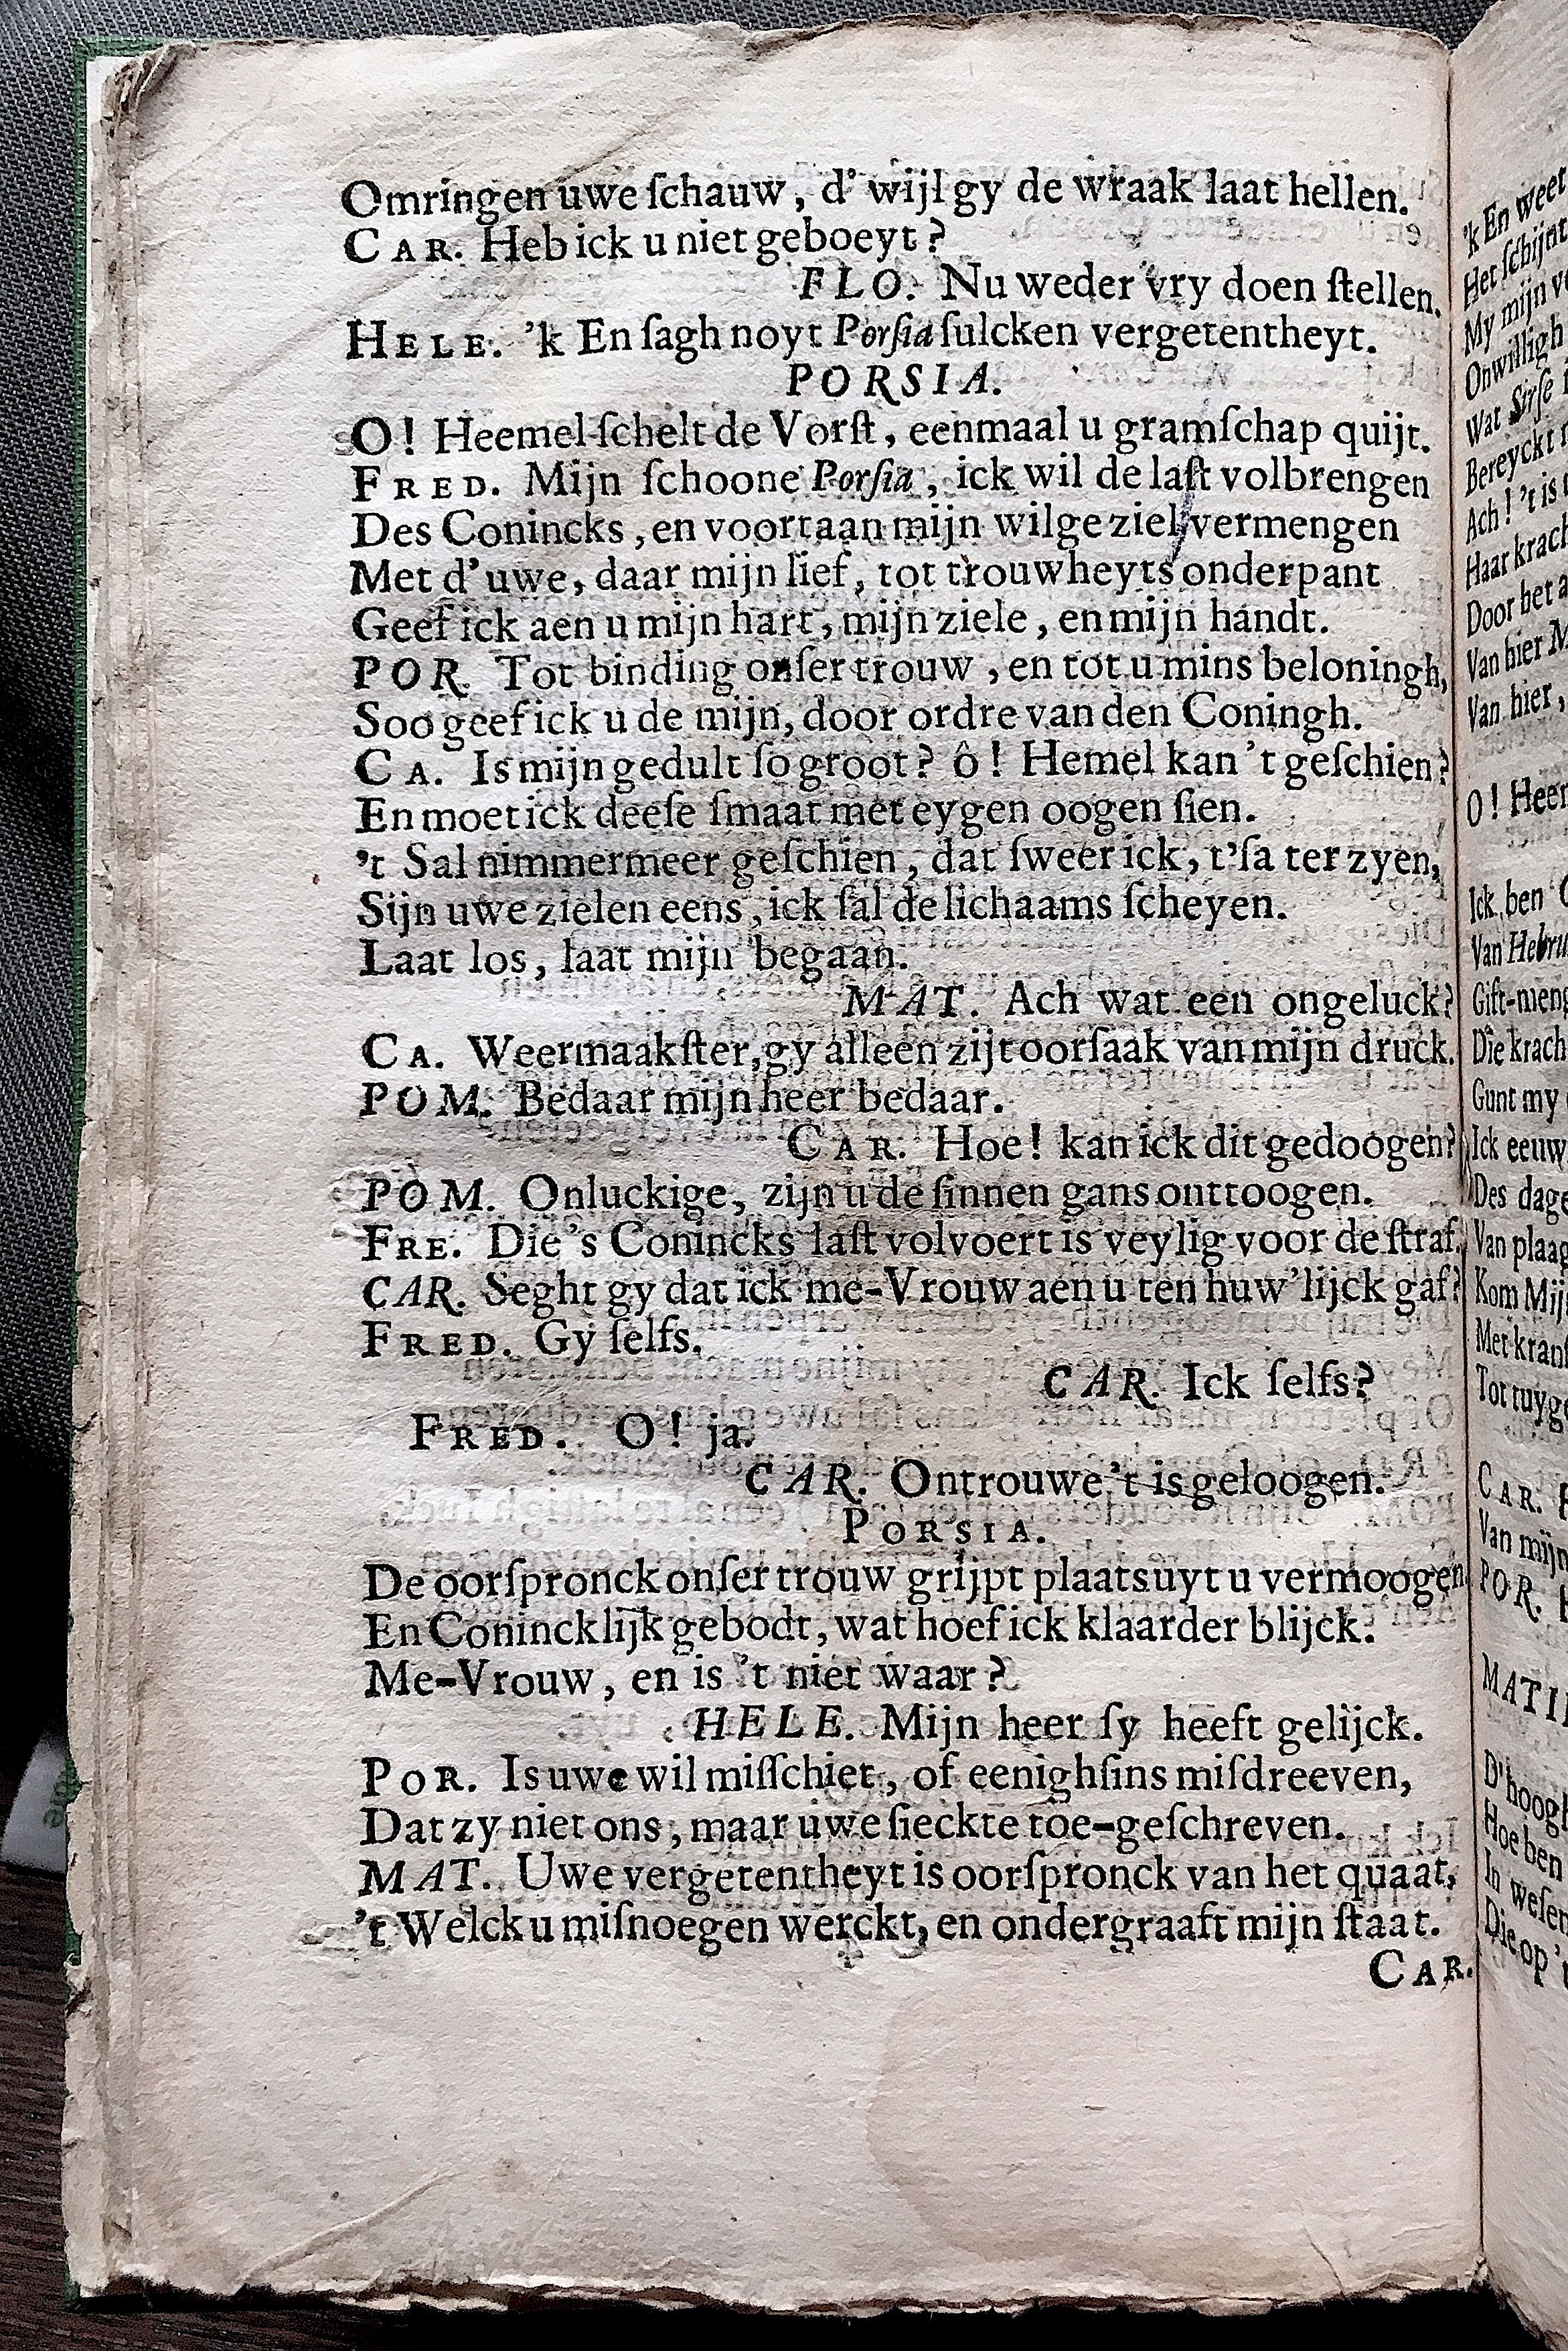 Omringen uwe ſchauw, d' wijl gy de wraak laat hellen.
CAR. Heb ick u niet geboeyt?
FLO. Nu weder vry doen ſtellen.
HELE. 'k En ſagh noyt Porſia ſulcken vergetentheyt.
PORSIA.
O! Heemel ſchelt de Vorſt, eenmaal u gramſchap quijt.
FRED. Mijn ſchoone Porſia, ick wil de laſt volbrengen
Des Conincks, en voortaan mijn wilge ziel vermengen
Met d'uwe, daar mijn lief, tot trouwheyts onderpant
Geef ick aen u mijn hart, mijn ziele, en mijn handt.
POR. Tot binding onſer trouw, en tot u mins beloningh,
Soo geef ick u de mijn, door ordre van den Coningh.
CA. Is mijn gedult ſo groot? ô! Hemel kan 't geſchien?
En moet ick deeſe ſmaat met eygen oogen ſien.
't Sal nimmermeer geſchien, dat ſweer ick, t'ſa ter zyen,
Sijn uwe zielen eens, ick ſal de lichaams ſcheyen.
Laat los, laat mijn begaan.
MAT. Ach wat een ongeluck?
CA. Weermaakſter, gy alleen zijt oorſaak van mijn druck.
POM. Bedaar mijn heer bedaar.
CAR. Hoe! kan ick dit gedoogen?
POM. Onluckige, zijn u de ſinnen gans onttoogen.
FRE. Die 's Conincks laſt volvoert is veylig voor de ſtraf.
CAR. Seght gy dat ick me-Vrouw aen u ten huw'lijck gaf?
FRED. Gy ſelfs.
CAR. Ick ſelfs?
FRED. O! ja.
CAR. Ontrouwe 't is geloogen.
PORSIA.
De oorſpronck onſer trouw grijpt plaats uyt u vermoogen
En Conincklijk gebodt, wat hoef ick klaarder blijck.
Me-Vrouw, en is 't niet waar?
HELE. Mijn heer ſy heeft gelijck.
POR. Is uwe wil miſſchiet, of eenighſins miſdreeven,
Dat zy niet ons, maar uwe ſieckte toe-geſchreven.
MAT. Uwe vergetentheyt is oorſpronck van het quaat,
't Welck u miſnoegen werckt, en ondergraaft mijn ſtaat.
CAR.
'k En weet
Het ſchijnt
My mijn
Onwilligh
Wat
Bereyckt
Ach! 't is
Haar
Door het
Van hier
Van hier,
O!
Ick ben
Van
Die
Gunt my
Ick
Des
Van
Kom
Met
CAR.
Van mijn
POR.
Hoe ben
In
Die op